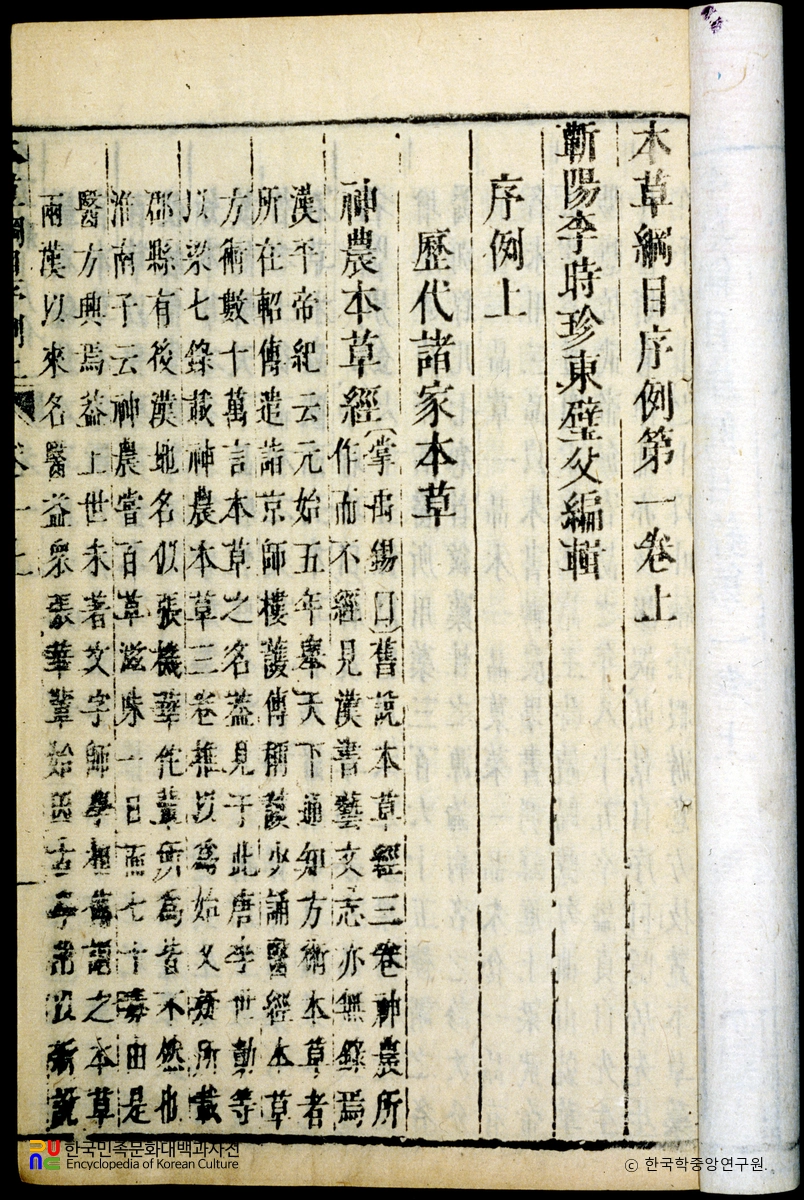 本草綱目序例第一卷上
蘄陽李時珍東璧父編輯
序例上
歷代諸家本草
神農本草經
掌禹錫曰舊說本草經三卷神農所
作而不經見漢書藝文志亦無錄焉
漢平帝紀云元始五年舉天下通知方術本草者
所在軺傳遣詣京師樓護傳稱護少誦醫經本草
方術數十萬言本草之名蓋見于此唐李世動等
以梁七錄載神農本草三卷推以為始又疑所載
郡縣有後漢地名似張機華佗輩所為皆不然也
淮南子云神農嘗百草滋味一日而七十毒由是
醫方興焉蓋上世未著文字師學相傳謂之本草
兩漢以來名醫益眾張華輩始因古以新說
한국민족문화대백과사전
Encyclopedia of Korean Culture
© 한국학중앙연구원.